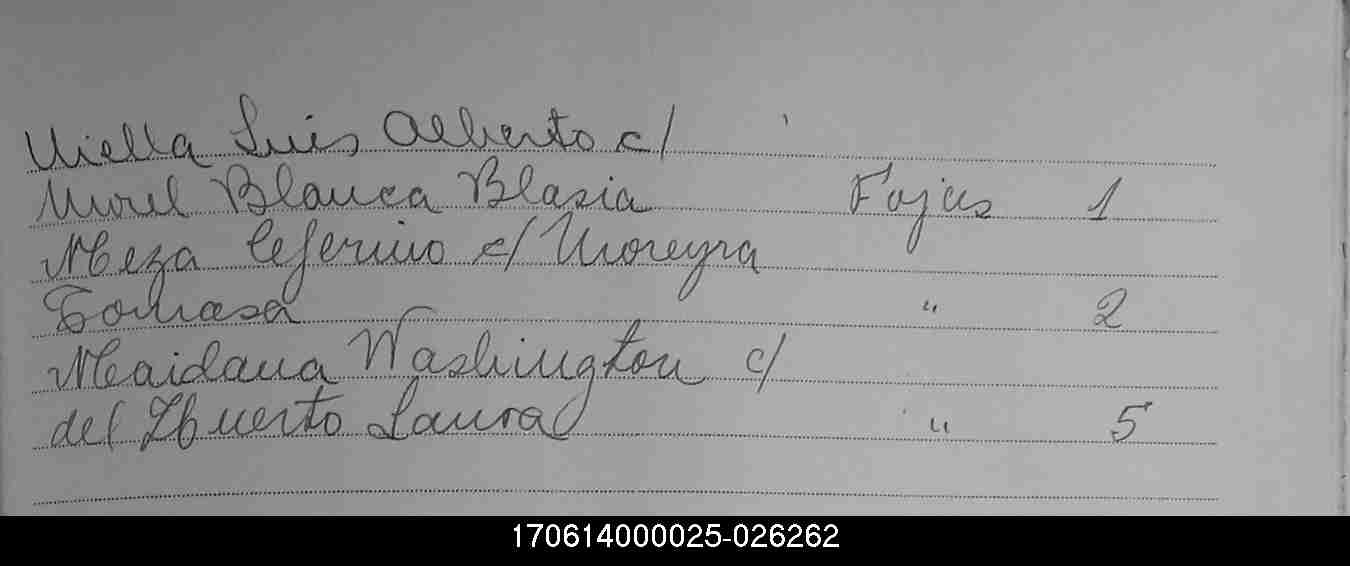 Miella Luis Alberto c/
Morel Blanca Blasia Fojas 1
Meza Ceferino c/ Moreyra
Tomasa " 2
Maidana Washington c/
del Huerto Laura " 5
170614000025-026262